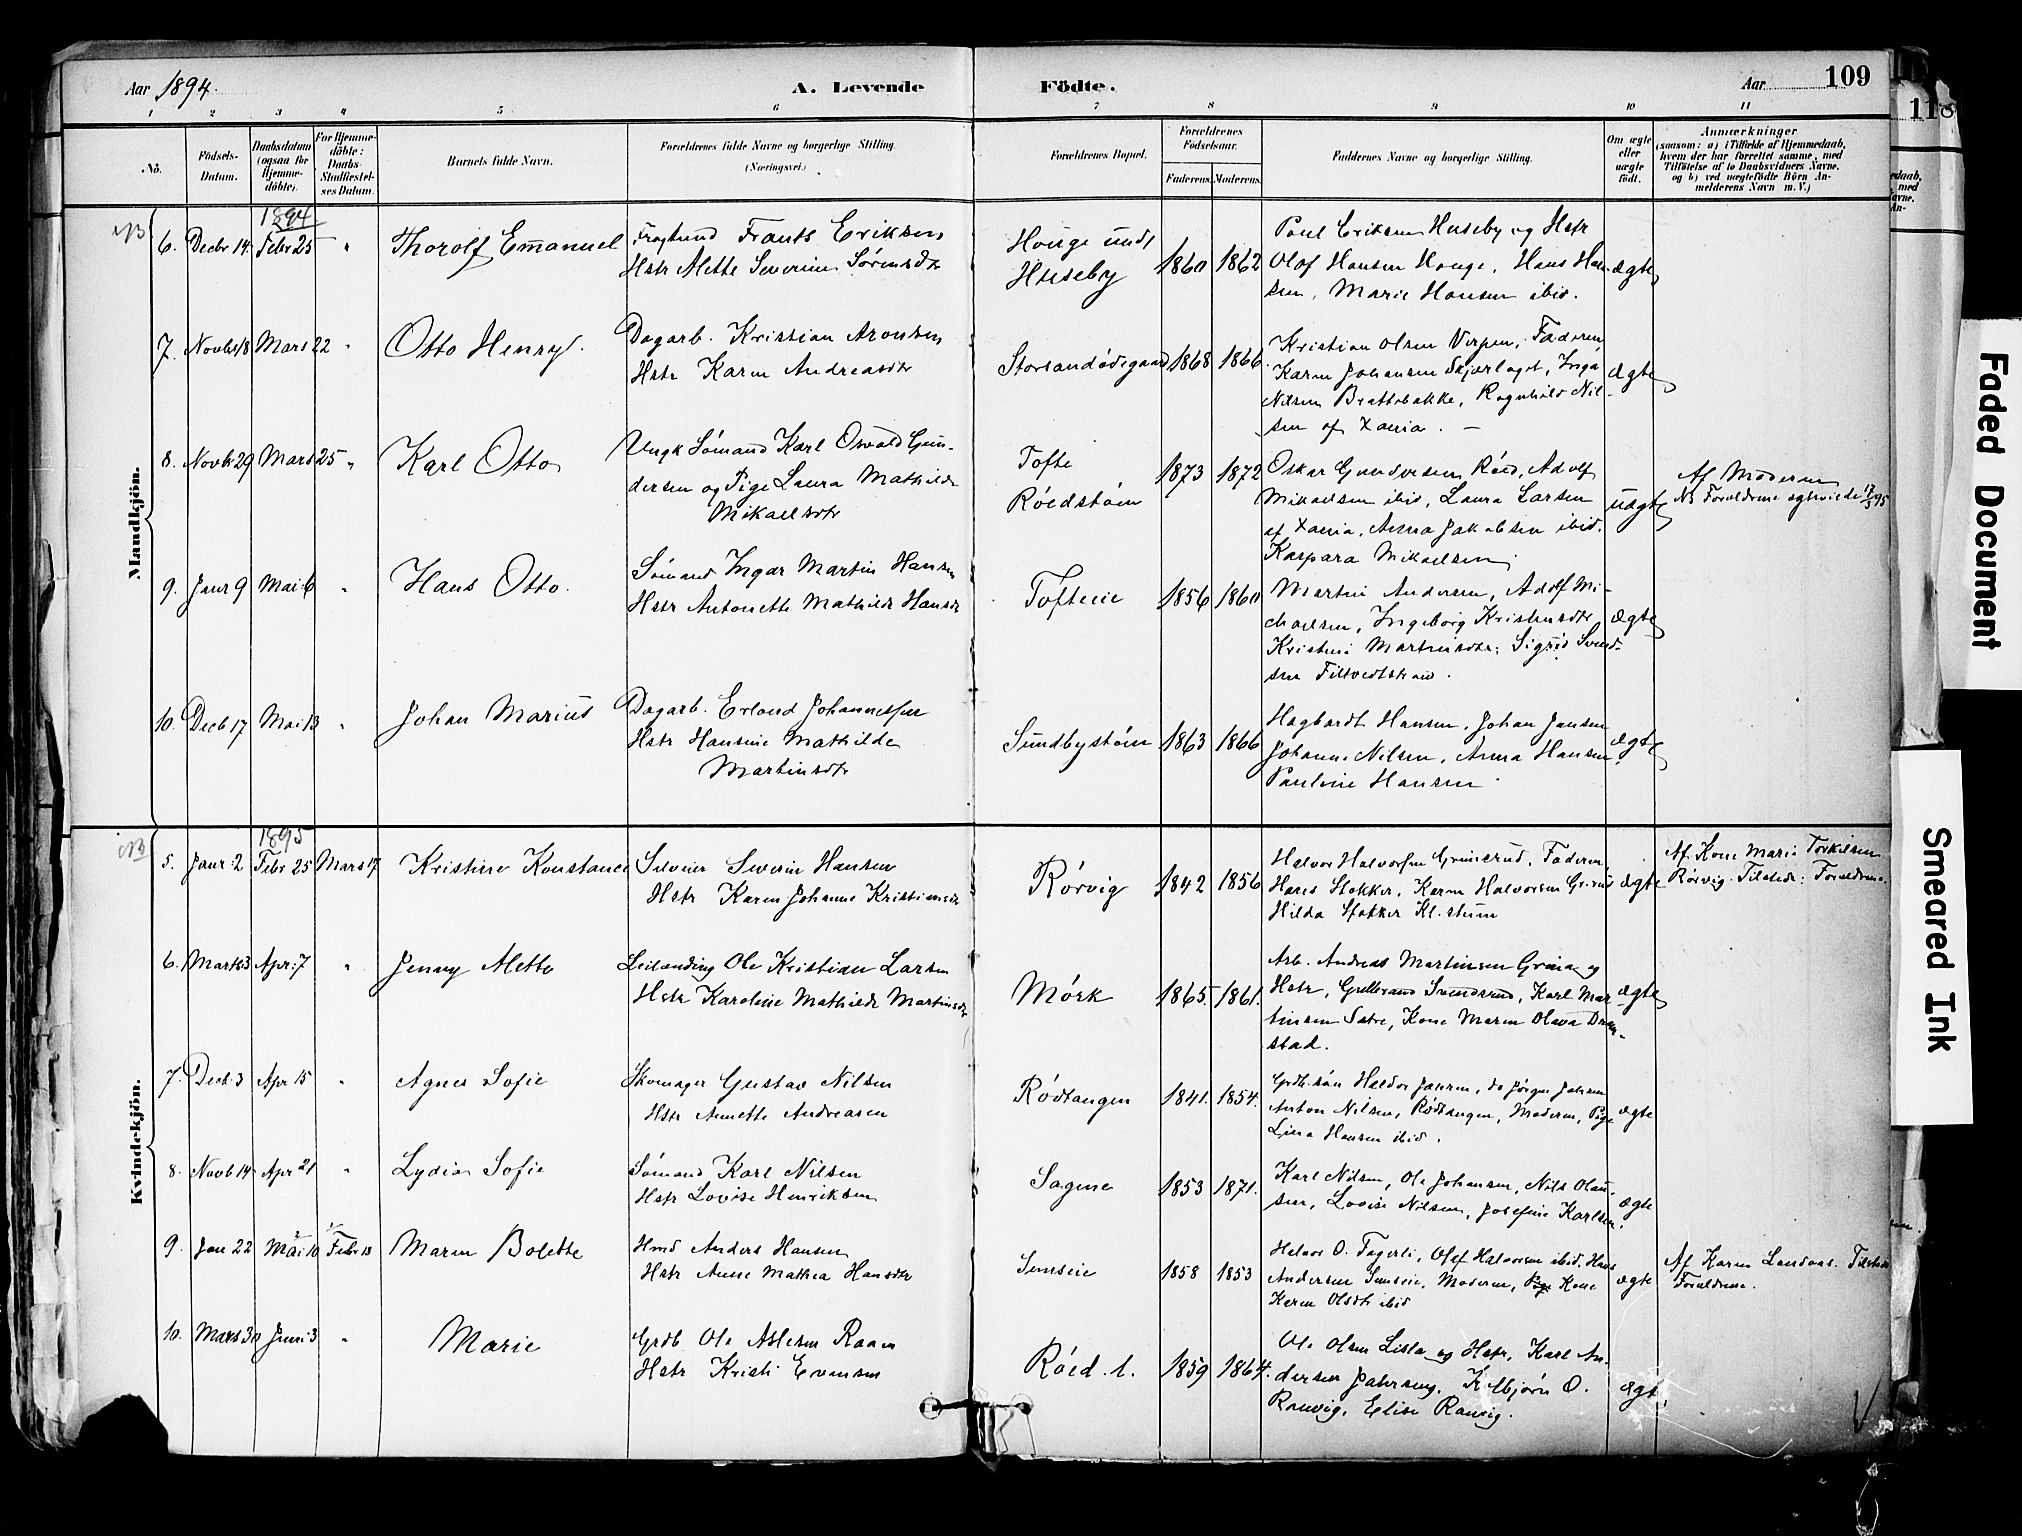 Aar 1894. A. Levende Födte. Aar 109
118
1 2 3 4 5 6 7 8 9 10 11
No.
Födsels-Datum.
Daabsdatum (ogsaa for Hjemmedöbte).
For Hjemmedöbte: Daabs-Stadfæstelses Datum.
Barnets fulde Navn.
Forældrenes fulde Navne og borgerlige Stilling.
(Næringsvei.)
Forældrenes Bopæl.
Forældrenes Födselsaar.
Faderens. Moderens.
Faddernes Navne og borgerlige Stilling.
Om ægte eller uægte födt.
Anmærkninger
(saasom: a) i Tilfælde af Hjemmedaab,
hvem der har forrettet samme, med
Tilföielse af to Daabsvidners Navne,
og b) ved uægtefödte Börn An-
melderens Navn m. V.)
Mandkjön.
NB
1894
6. Decbr 14. Febr 25 " Thorolf Emanuel
Frants Eriksen
Hstr Alette Severine Sørensdtr
Houge und,
Huseby
1860 1862
Poul Eriksen Huseby og Hstr
Olaf Hansen Houge, Hans Han-
sen, Marie Hansen ibid.
ægte
7. Novb 18 Mars 22 " Otto Henry.
Dagarb. Kristian Aronsen
Hstr Karen Andreasdtr
Storsandödegaard 1868 1866
Kristian Olsen Verpen, Faderen,
Karen Johansen Skjærlaget, Inga
Nilsen Brattebakke, Ragnhild Nil-
sen af Xania. —
ægte
8. Novb 29 Mars 25 " Karl Otto
Ungk Sömand Karl Osvald Gun-
dersen og Pige Laura Mathilde
Mikaelsdtr
Tofte
Röedstöen
1873 1872
Oskar Gundersen Röed, Adolf
Mikaelsen ibid, Laura Larsen
af Xania, Anna Jakobsen ibid.
Kaspara Mikaelsen.
uægte
Af Moderen
NB Forældrene egteviede 17/3 95
9. Janr 9 Mai 6 " Hans Otto.
Sömand Ingar Martin Hansen
Hstr Antonette Mathilde Hansdtr
Tofteeie 1856 1860
Martin Andersen, Adolf Mi-
chaelsen, Ingeborg Kristensdtr
Kristine Martinsdtr, Sigrid Svend-
sen Filtvedtstrand.
ægte
10. Decb 17 Mai 13 " Johan Marius
Dagarb. Erland Johannessen
Hstr Hansine Mathilde
Martinsdtr
Sundbystöen 1863 1866
Hagbardt Hansen, Johan Jansen
Johanne Nilsen, Anna Hansen,
Pauline Hansen.
ægte
Kvindekjön.
NB
1895
5. Janr. 2 Febr 25 Mars 17 Kristine Konstance
Selveier Severin Hansen
Hstr Karen Johanne Kristiansdtr
Rörvig 1842 1856
Halvor Halvorsen Grimsrud, Faderen
Hans Stokker, Karen Halvorsen
Hilda Stokker
ægte
Af Kone Marie Torkilsen
Rörvig. Tilstede: Forældrene.
6. Marts 3 Apr. 7 " Jenny Alette
Leilænding Ole Kristian Larsen
Hstr Karoline Mathilde Martinsdtr
Mörk 1865. 1861.
Arb. Andreas Martinsen Grina og
Hstr, Gulbrand Svindsrud, Karl Mar-
tinsen Sætre, Kone Maren Olava
stad.
ægte
7. Decb. 3 Apr 15 " Agnes Sofie
Skomager Gustav Nilsen
Hstr Annette Andreasen
Rödtangen 1841. 1854.
Grdb. sön Haldor Jansen, do Jörgen Jahren
Anton Nilsen, Rödtangen, Moderen, Pige
Lina Hansen ibid.
ægte
8. Novb 14 Apr 21 " Lydia Sofie
Sömand Karl Nilsen
Hstr Lovise Henriksen
Sagene 1853 1871.
Karl Nilsen, Ole Johansen, Nils Olau-
sen, Lovise Nilsen, Josefine Karlsen.
ægte
9. Jan 22 Mai 10 Febr 13 Maren Bolette
Hmd Anders Hansen
Hstr Anne Mathea Hansdtr
Semseie 1858 1853
Halvor O. Fagerli, Olaf Halvorsen ibid. Hans
Andersen Semseie, Moderen, Kone
Karen Olsdtr ibid
ægte
Af Karen Landaas. Tilstede
Forældrene.
10. Mars 30 Juni 3 " Marie
Grdb Ole Aslesen Raaen
Hstr Kristi Evensen
Röed. l. 1859 1864.
Ole Olsen Lisla og Hstr, Karl An-
dersen Kilbjörn O.
Ranvig, Elise Ranvig.
ægte
Faded Document
Smeared Ink